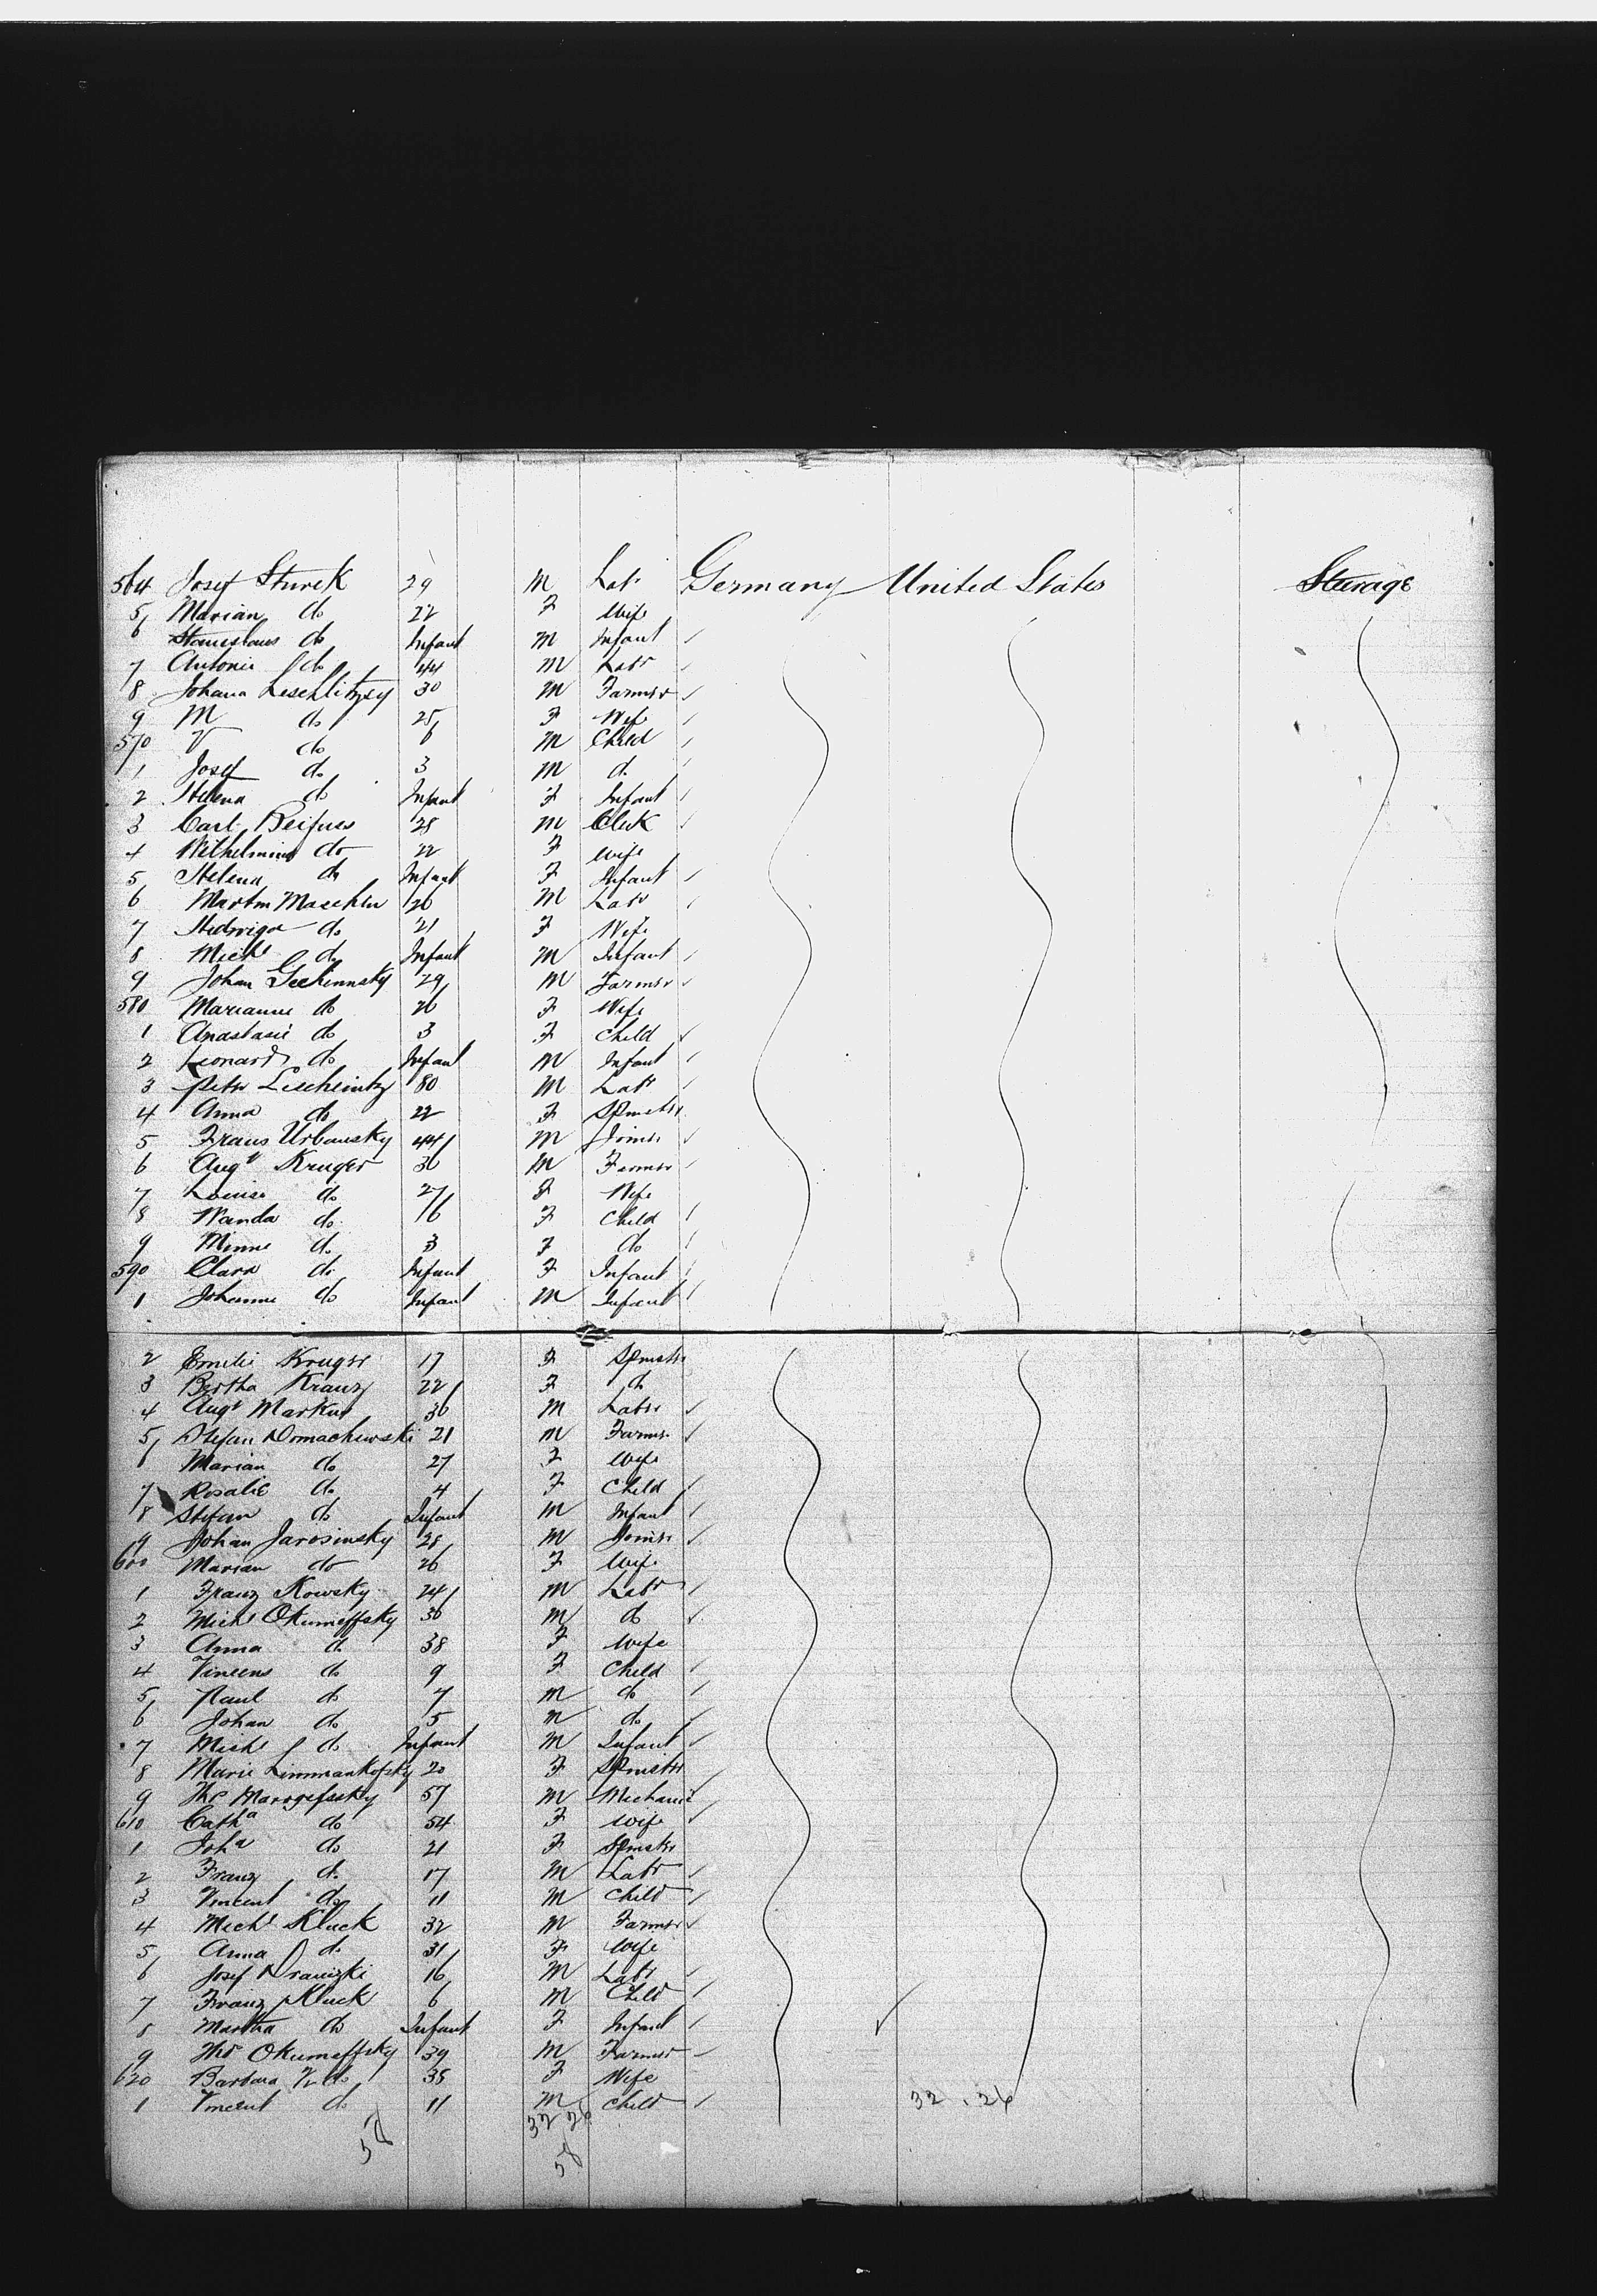 564 Josef Sturek 29 M Labr Germany United States Steerage
5 Marian do 22 F Wife
6 Stanislaus do Infant M Infant
7 Antonie do 44 M Labr
8 Johann Leschlitzey 30 M Farmer
9 M do 25 F Wife
570 V do 6 M Child
1 Josef do 3 M do
2 Helena do Infant F Infant
3 Carl Beifuss 28 M Clerk
4 Wilhelmine do 22 F Wife
5 Helena do Infant F Infant
6 Martin Maschlin 26 M Labr
7 Hedwiga do 21 F Wife
8 Michl do Infant M Infant
9 Johan 29 M Farmer
580 Marianne do 26 F Wife
1 Anastasie do 3 F Child
2 Leonard do Infant M Infant
3 Peter Lischeintz 80 M Labr
4 Anna do 22 F Spinster
5 Franz Urbansky 44 M Joiner
6 Augt Kruger 36 M Farmer
7 Louise do 27 F Wife
8 Wanda do 6 F Child
9 Minne do 3 F do
590 Clara do Infant F Infant
1 Johanne do Infant M Infant
2 Emilie Kruger 17 F Spinster
3 Bertha Kranz 22 F do
4 Augt Markus 30 M Labr
5 Stefan Domachewski 21 M Farmer
6 Marian do 27 F Wife
7 Rosalie do 4 F Child
8 Stefan do Infant M Infant
9 Johan Jarosinsky 28 M Joiner
600 Marian do 26 F Wife
1 Franz Kowsky 24 M Labr
2 Michl Okumeffsky 36 M do
3 Anna do 38 F Wife
4 Vincens do 9 F Child
5 Paul do 7 M do
6 Johan do 5 M do
7 Michl do Infant M Infant
8 Marie Limmankofsky 20 F Spinster
9 Ths 57 M Mechanic
610 Catha do 54 F Wife
1 Joha do 21 F Spinster
2 Franz do 17 M Labr
3 Vincent do 11 M Child
4 Michl Kluck 32 M Farmer
5 Anna do 31 F Wife
6 Josef Draniczki 16 M Labr
7 Franz Kluck 6 M Child
8 Martha do Infant F Infant
9 Ths Okumeffsky 39 M Farmer
620 Barbara do 35 F Wife
1 Vincent do 11 M Child
32 26
58 32 26
58